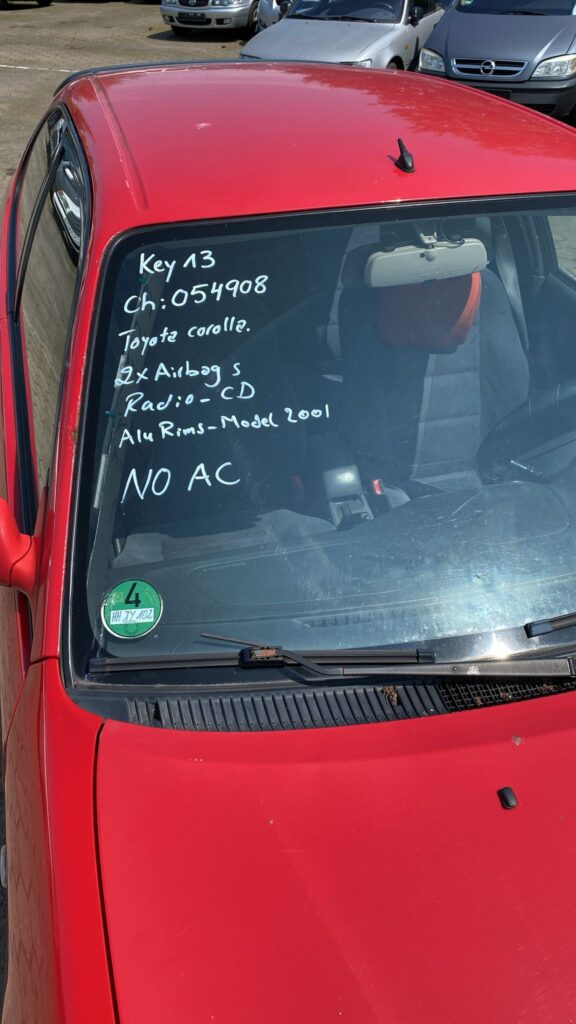 Key 13
Ch: 054908
Toyota corolla.
2x Airbag s
Radio - CD
Alu Rims - Model 2001
NO AC
4
HH JY 102